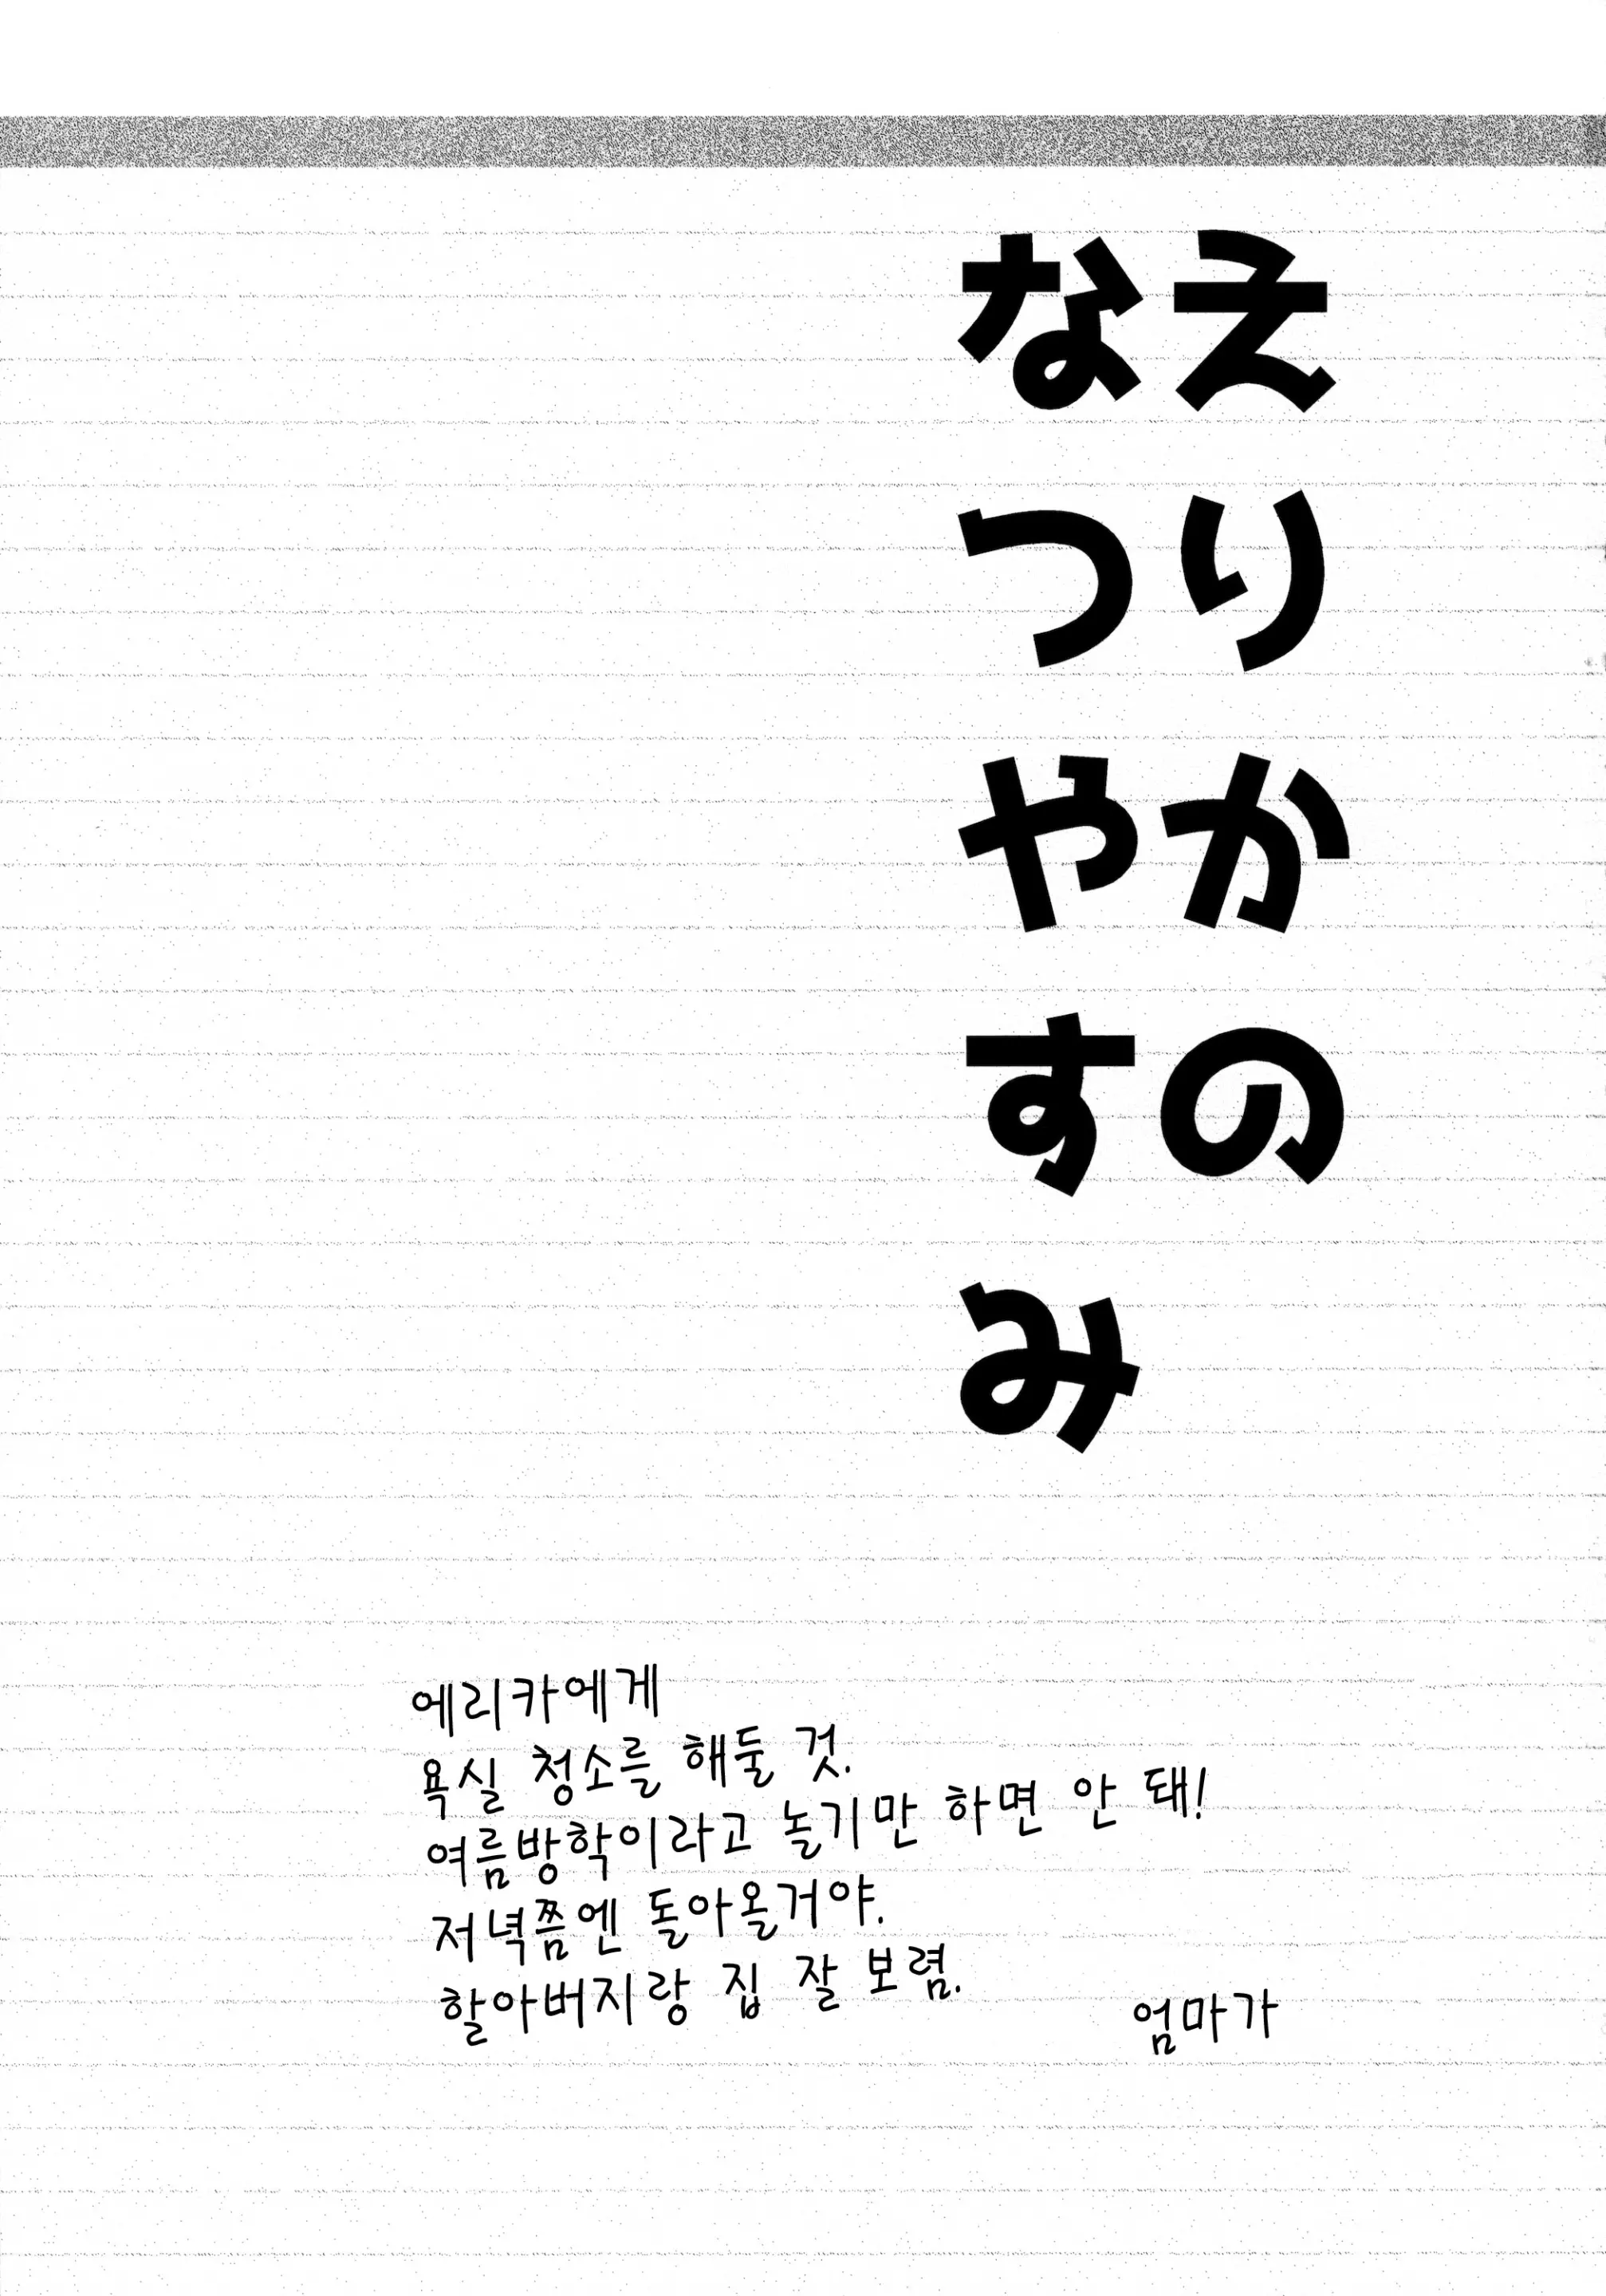 えりかの
なつやすみ
에리카에게
욕실 청소를 해둘 것.
여름방학이라고 놀기만 하면 안 돼!
저녁쯤엔 돌아올거야.
할아버지랑 집 잘 보렴.
엄마가